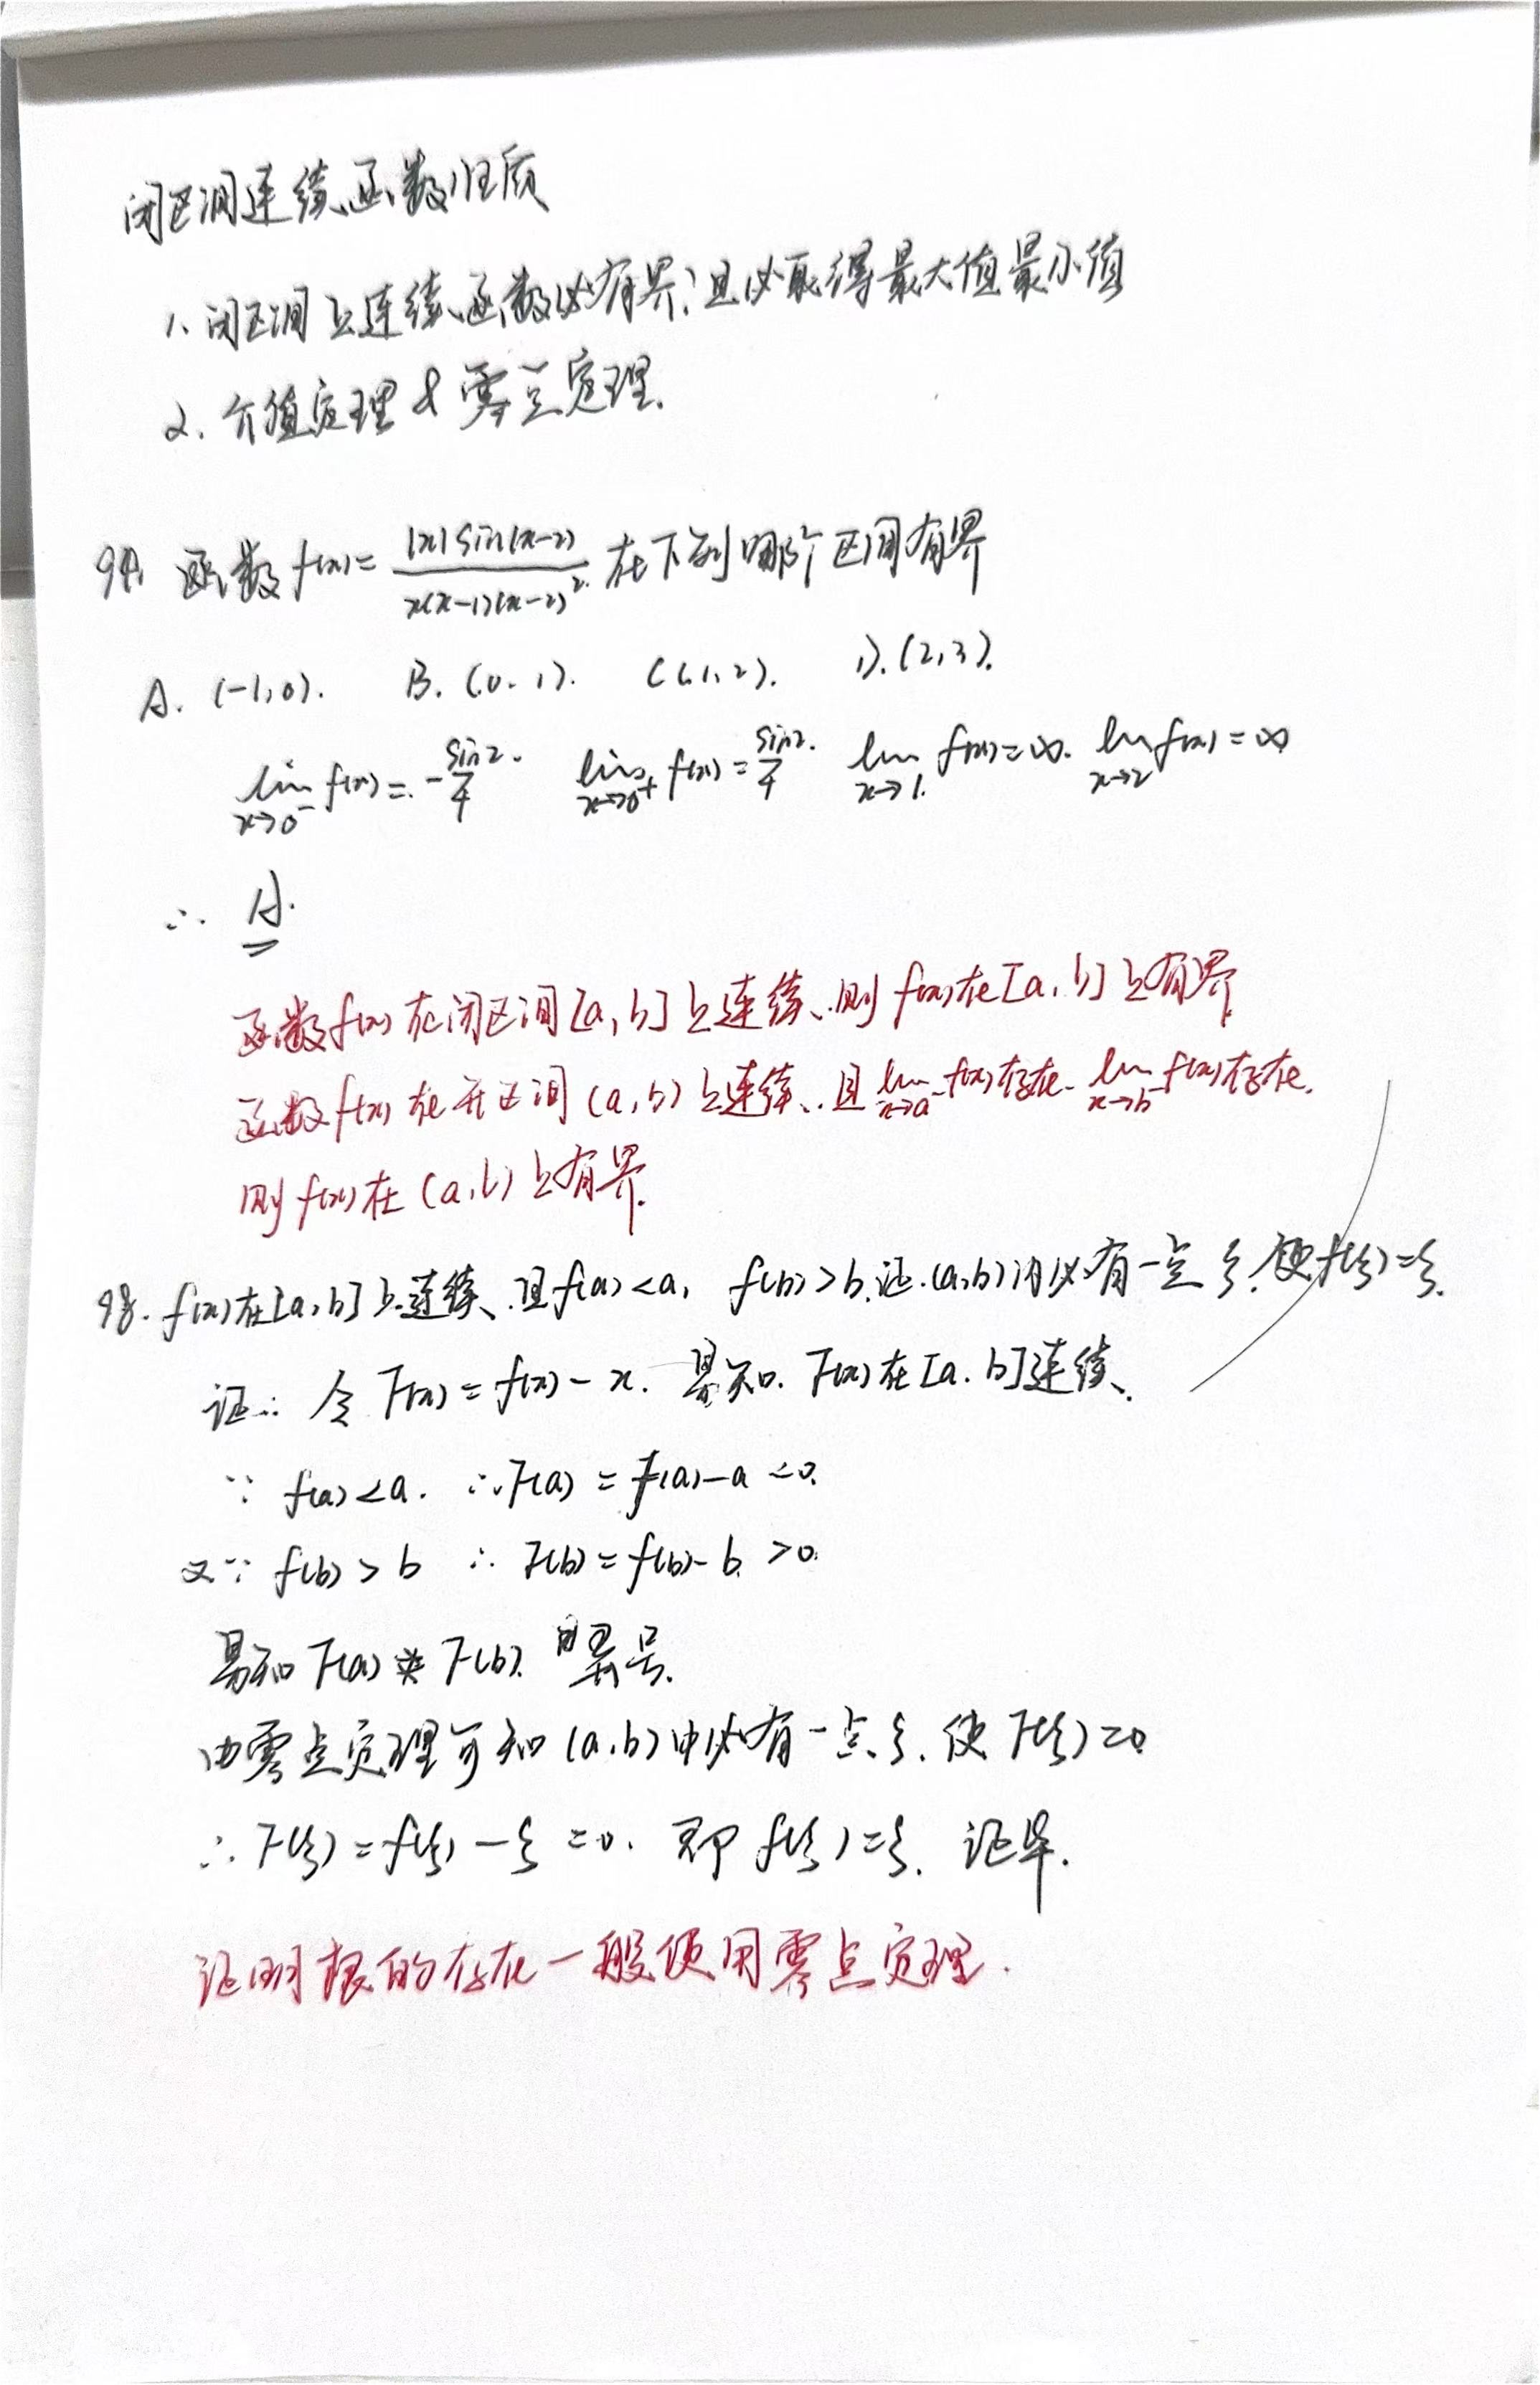 闭区间连续函数性质
1. 闭区间上连续函数必有界；且必取得最大值最小值
2. 介值定理 & 零点定理.
97. 函数 f(x) = |x|sin(x-2) / x(x-1)(x-2)² 在下列哪个区间有界
A. (-1,0). B. (0,1). C(1,2). D.(2,3).
lim x→0⁻ f(x) = -sin2/4. lim x→0⁺ f(x) = sin2/4. lim x→1. f(x)=∞. lim x→2 f(x)=∞
∴ A.
函数f(x)在闭区间[a,b]上连续、则f(x)在[a,b]上有界
函数f(x)在开区间(a,b)上连续、且 lim x→a⁻ f(x)存在. lim x→b⁻ f(x)存在.
则f(x)在(a,b)上有界.
98. f(x)在[a,b]上连续、且f(a)<a, f(b)>b. 证.(a,b)内必有一点ξ.使f(ξ)=ξ.
证: 令F(x)=f(x)-x. 易知. F(x)在[a.b]连续、
∵ f(a)<a. ∴F(a)=f(a)-a<0.
又∵ f(b)>b ∴ F(b)=f(b)-b.>0.
易知F(a) F(b). 异号.
由零点定理可知(a,b)中必有一点ξ. 使F(ξ)=0.
∴F(ξ)=f(ξ)-ξ=0. 即f(ξ)=ξ. 证毕.
证明根的存在一般使用零点定理.